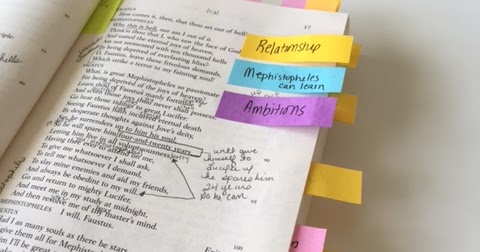 (1.3)
FAUSTUS
How comes it, then, that thou art out of hell?
MEPHISTOPHELES
Why this is hell, nor am I out of it.
Think'st thou that I, who saw the face of God
And tasted the eternal joys of heaven,
Am not tormented with ten thousand hells
In being deprived of everlasting bliss?
O Faustus, leave these frivolous demands,
Which strike a terror to my fainting soul!
FAUSTUS
What, is great Mephistopheles so passionate
For being deprived of the joys of heaven?
Learn thou of Faustus manly fortitude,
And scorn those joys thou never shalt possess.
Go bear those tidings to great Lucifer:
Seeing Faustus hath incurred eternal death
By desperate thoughts against Jove's deity,
Say he surrenders up to him his soul,
So he will spare him four and twenty years,
Letting him live in all voluptuousness,
Having thee ever to attend on me,
To give me whatsoever I shall ask,
To tell me whatsoever I demand,
To slay mine enemies and aid my friends,
And always be obedient to my will.
Go and return to mighty Lucifer,
And meet me in my study at midnight,
And then resolve me of thy master's mind.
MEPHISTOPHELES
I will, Faustus.
FAUSTUS
Had I as many souls as there be stars
Relationship
Mephistopheles
can learn
Ambitions
will give
himself to
Lucifer if
he spares him
24 years
So he can
100